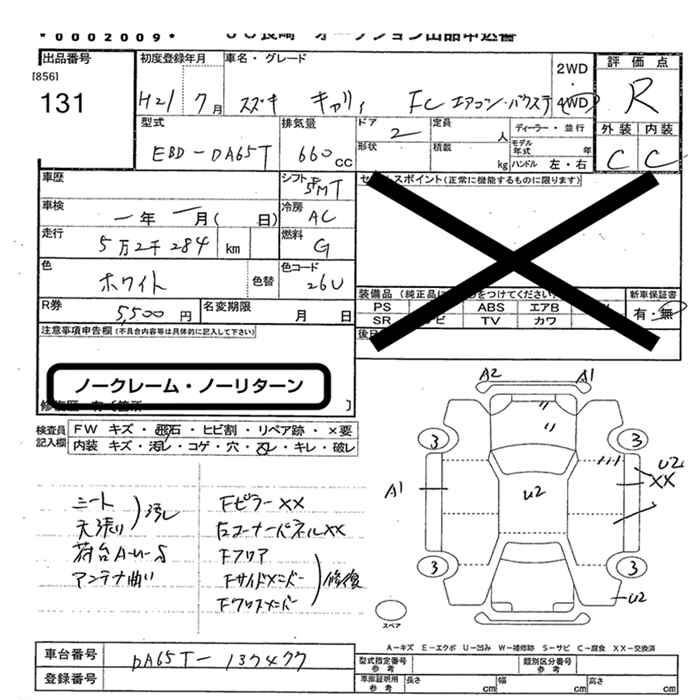 *0002009*
JU長崎 オークション出品申込書
出品番号
[856]
131
初度登録年月
H21 7月
車名・グレード
スズキ キャリィ FC エアコン・パワステ
2WD
4WD
評価点
R
外装 内装
C C
型式
EBD-DA65T
排気量
660cc
ドア
2
定員
人
形状
積載
kg
ディーラー・並行
モデル年式 年
ハンドル 左・右
車歴
シフト
5MT
セールスポイント (正常に機能するものに限ります)
車検
年 月( 日)
冷房
AC
走行
5万2千284 km
燃料
G
色
ホワイト
色替
色コード
26U
装備品 (純正品に
をつけてください)
PS ABS エアB
SR TV カワ
新車保証書
有・無
R券
5,500円
名変期限
月 日
後日
注意事項申告欄 (不具合内容等は具体的に記入して下さい)
ノークレーム・ノーリターン
検査員記入欄
FW キズ・飛石・ヒビ割・リペア跡・×要
内装 キズ・汚レ・コゲ・穴・スレ・キレ・破レ
シート
天張り
汚レ
荷台A-U-S
アンテナ曲り
Fピラー XX
Fコーナーパネル XX
Fフロア
Fサイドメンバー
Fクロスメンバー
修復
A2 A1
3 3
A1 U2 U2
XX
3 3
U2
スペア
A-キズ E-エクボ U-凹み W-補修跡 S-サビ C-腐食 XX-交換済
車台番号
DA65T-137477
登録番号
型式指定番号 参考
類別区分番号 参考
車庫証明用 参考
長さ cm
幅 cm
高さ cm